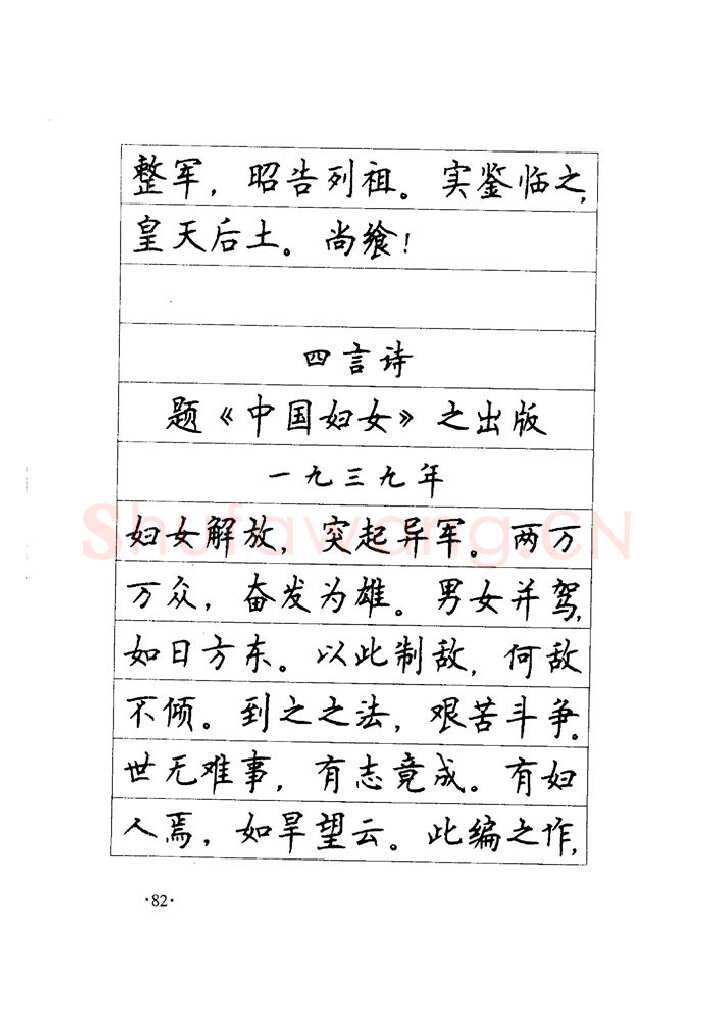 整军，昭告列祖。实鉴临之，
皇天后土。尚飨！
四言诗
题《中国妇女》之出版
一九三九年
妇女解放，突起异军。两万
万众，奋发为雄。男女并驾，
如日方东。以此制敌，何敌
不倾。到之之法，艰苦斗争。
世无难事，有志竟成。有妇
人焉，如旱望云。此编之作，
·82·
Shufawang.CN